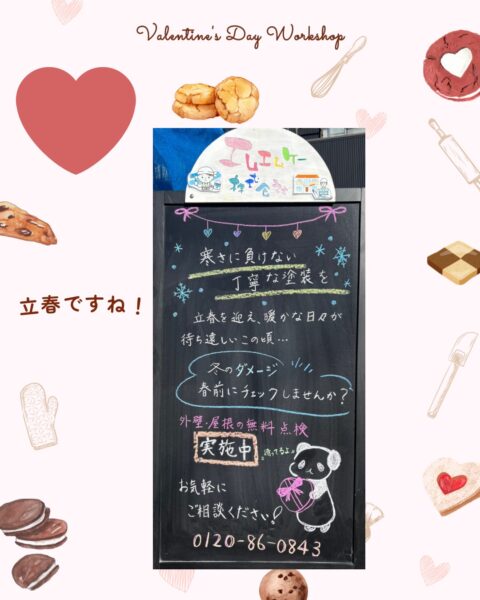 Valentine's Day Workshop
エムエムケー
株式会社
寒さに負けない
丁寧な塗装を
立春ですね!
立春を迎え、暖かな日々が
待ち遠しいこの頃…
冬のダメージ
春前にチェックしませんか?
外壁・屋根の無料点検
実施中
待ってるよ
お気軽に
ご相談ください!
0120-86-0843